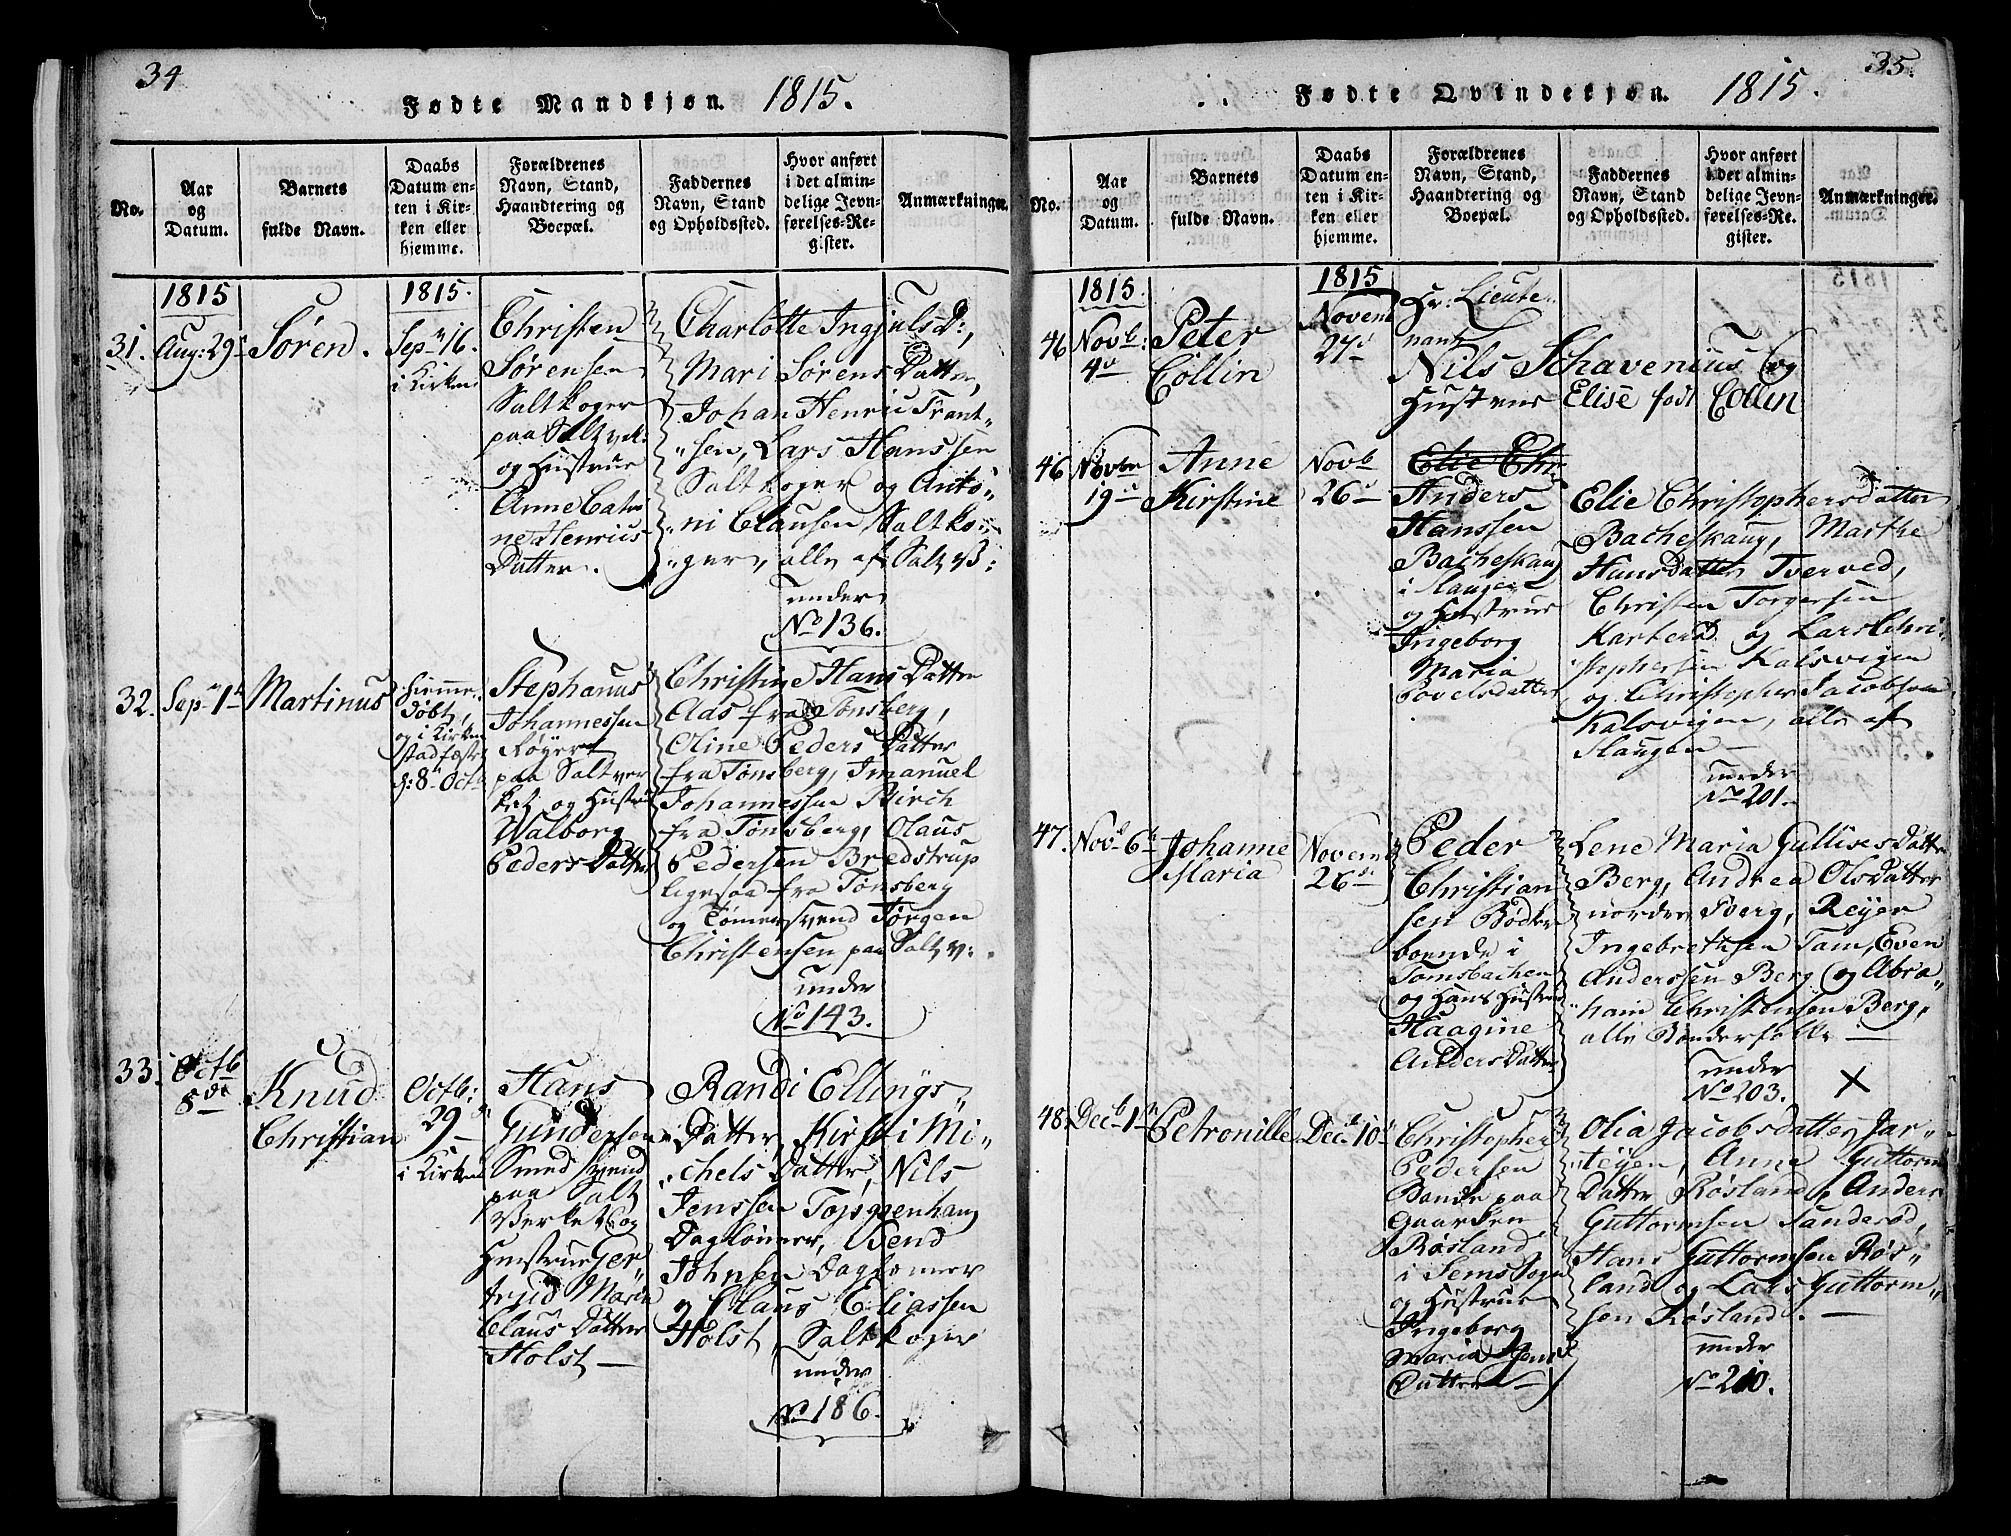 34
Fødte Mandkjøn. 1815.
No.
Aar
og
Datum.
Barnets
fulde Navn.
Daabs
Datum en-
ten i Kir-
ken eller
hjemme.
Forældrenes
Navn, Stand,
Haandtering og
Boepæl.
Faddernes
Navn, Stand
og Opholdssted.
Hvor anført
i det almin-
delige Jevn-
førelses-Re-
gister.
Anmærkninger.
1815
31.
Aug: 29
Søren.
1815.
Sepr 16.
i Kirken
Christen
Sørensen
Saltkoger
paa Saltverk:
og Hustrue
Anne Catri
ne Henrics
Datter.
Charlotte Ingjulsd:,
Mari Sørens Datter,
Johan Henric Frant"
"sen, Lars Hanssen
Saltkoger og Anto"
"ni Clausen Saltko"
"ger, alle af Saltv:
under
No 136.
32.
Sepr 1
Martinus
hjemme
døbt,
og i Kirken
stadfæstet
d: 8 Octb
Stephanus
Johannessen
Røyert
paa Saltver
ket og Hustrue
Walborg
Peders Datter
Christine Hans Datter
Aas fra Tønsberg,
Oline Peders Datter
fra Tønsberg, Imanuel
Johannessen Birch
fra Tønsberg, Olaus
Pedersen Bredstrup
ligesaa fra Tønsberg
og Tømersvend Jørgen
Christensen paa Saltv:.
under
No 143.
33.
Octb
8de
Knud
Christian
Octb:
29
i Kirken
Hans
Gundersen
Smed svend
paa Salt
Verket og
Hustrue Ger"
trud Marie
Claus Datter
Holst
Randi Ellings"
Datter, Kirsti Mi"
"chels Datter, Nils
Jenssen Tojsgenhaug
Dagloner, Bend
Johnsen Dagloner
og Claus Eliassen
Holst, Saltkoger
under
No 186.
35.
Fødte Qvindekjøn. 1815.
No.
Aar
og
Datum.
Barnets
fulde Navn.
Daabs
Datum en-
ten i Kir-
ken eller
hjemme.
Forældrenes
Navn, Stand,
Haandtering og
Boepæl.
Faddernes
Navn, Stand
og Opholdssted.
Hvor anført
i det almin-
delige Jevn-
førelses-Re-
gister.
Anmærkninger.
1815.
46
Novb:
4
Peter
Collin
1815
Novem
27
Hr: Lieute"
nant
Nils Schavenius og
Hustrue Elise født Collin
46
Novbr
19
Anne
Kirstine
Novb
26
Elie Chr
Anders
Hanssen
Bacheskaug
i Slaugen
og Hustrue
Ingeborg
Maria
Povelsdatter
Elie Christophersdatter
Bacheskaug, Marthe
Hansdatter Tverved,
Christen Torgersen
Karterød og Lars Chri"
"stophersen Kalsvigen
og Christopher Jacobsen
Kalsvigen, alle af
Slaugen
under
No 201.
47.
Novb 6
Johanne
Maria
Novem
26
Peder
Christian
sen Bødker
boende i
Tomsbachen
og Hans Hustrue
Haagine
Anders Datter
Lene Maria Gullises Datter
Berg, Andrea Olsdatter
norden Berg, Reyer
Ingebrethsen Tam, Even
Anderssen Berg og Abra"
"ham Christensen Berg,
alle Bønderfolk
under
No 203.
X
48.
Decb 1
Petronille
Decb 10
Christopher
Pedersen
Bonde paa
Gaarden
Røsland
i Sems Sogn
og Hustrue
Ingeborg
Maria Jens
Datter
Olia Jacobsdatter Jar"
"teyen, Anne Guttorm
Datter Røsland, Anders
Guttormsen Sanderød,
Hans Guttormsen Røs"
land og Lars Guttorm"
sen Røsland.
under
No 210.